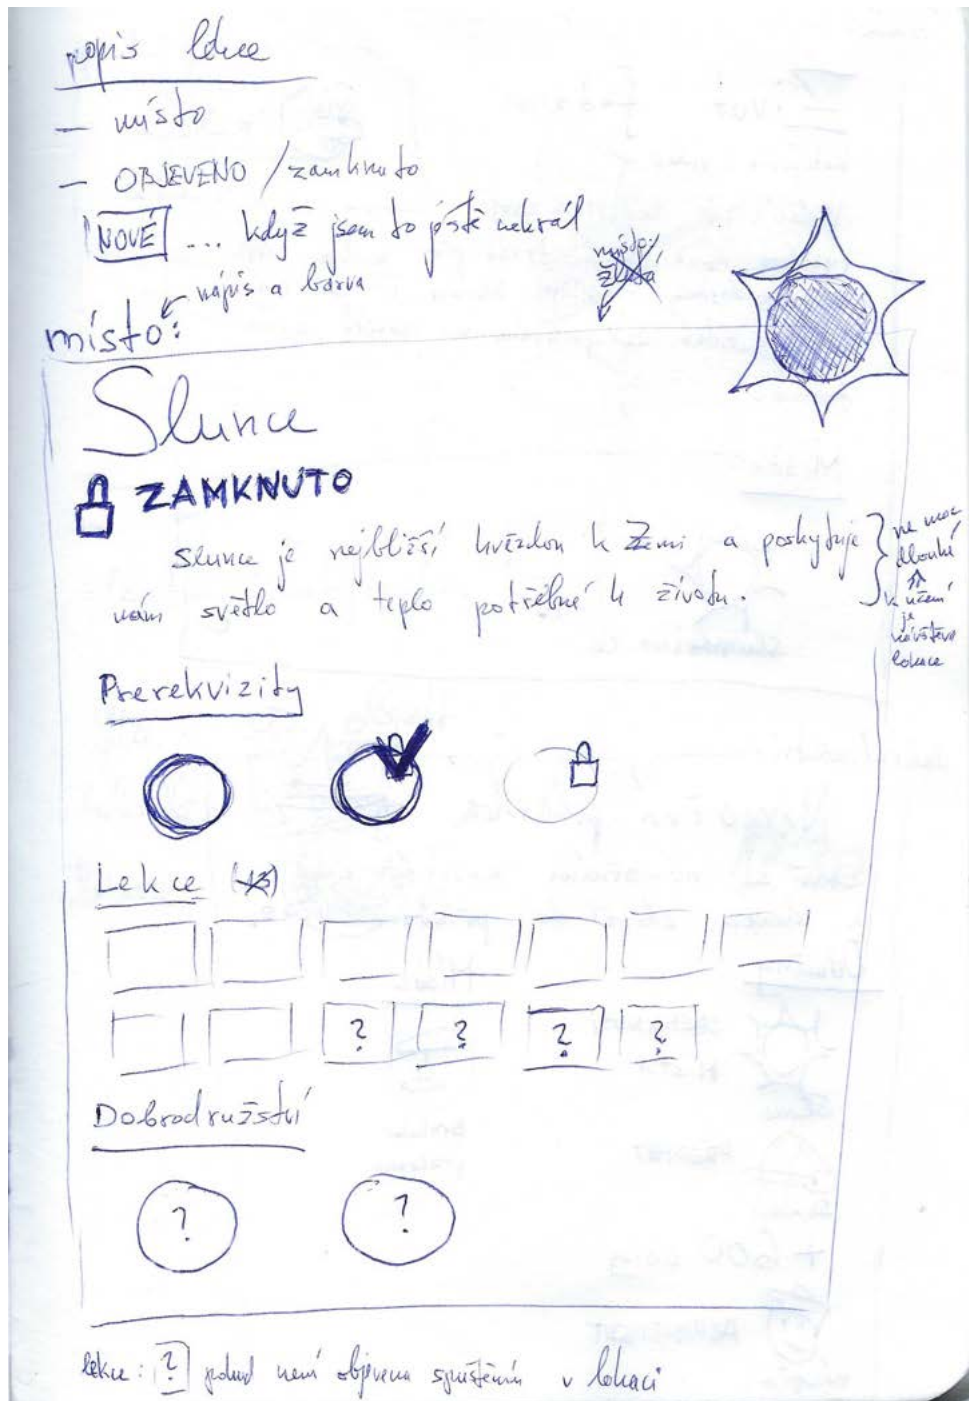 popis lekce
— místo
— OBJEVENO / zamknuto
NOVÉ ... když jsem to ještě nehrál
nápis a barva
místo:
místo:
Slunce
ZAMKNUTO
Slunce je nejbližší hvězdou k Zemi a poskytuje
nám světlo a teplo potřebné k životu.
ne moc
dlouhé
k učení
je
návštěva
lokace
Prerekvizity
Lekce (13)
? ? ? ?
Dobrodružství
? ?
lekce: ? pokud není objevena spuštěním v lokaci